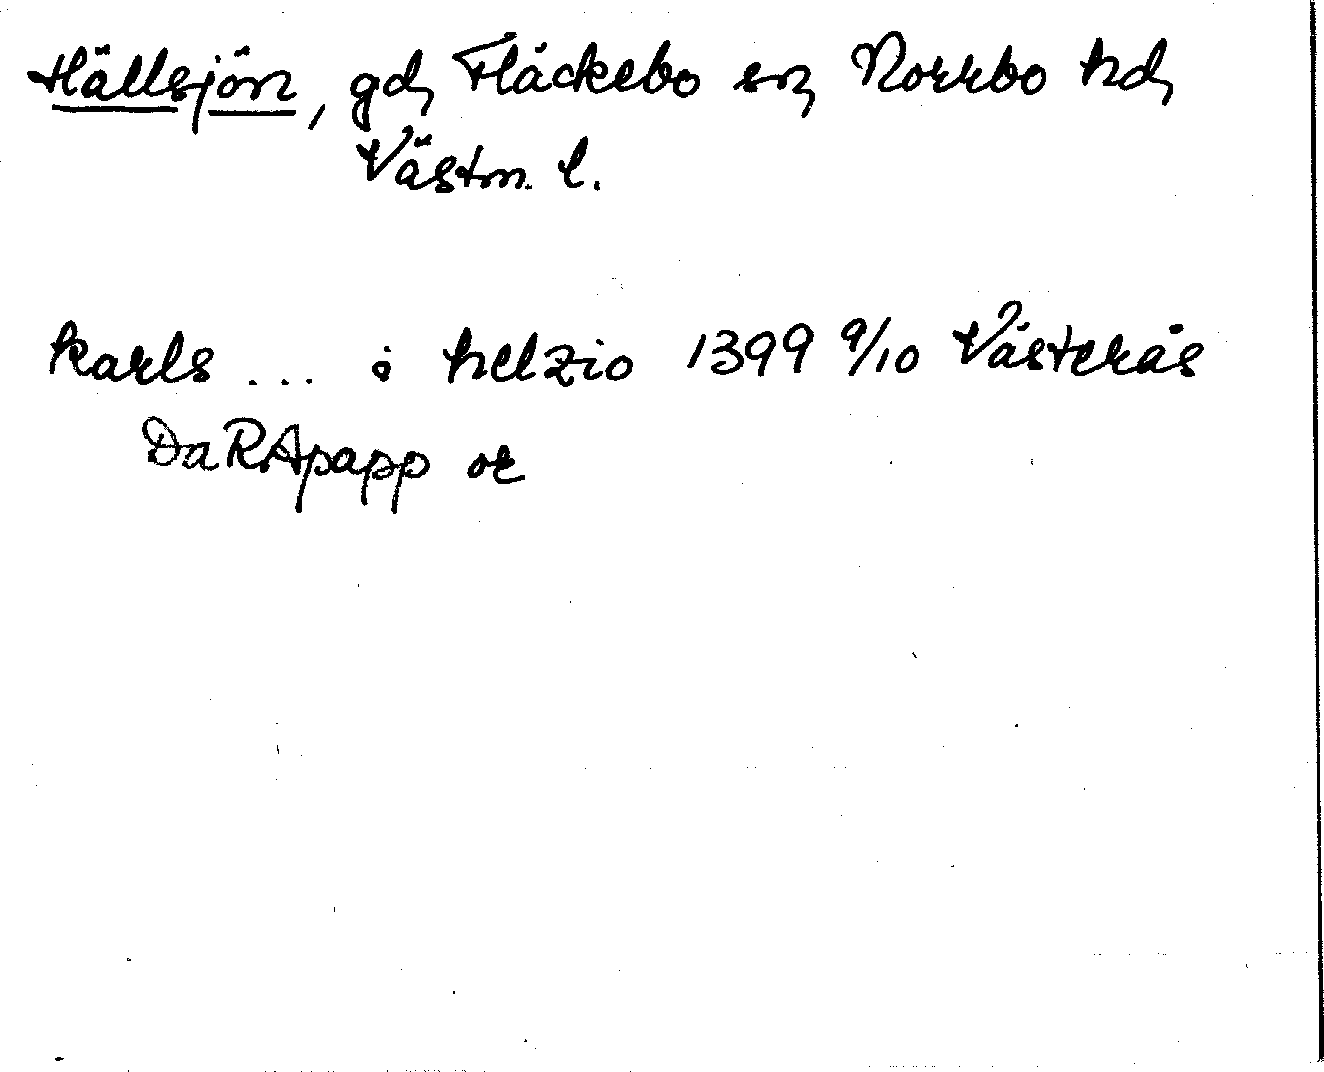 Hällsjön, gd, Fläckebo sn, Norrbo hd,
Västm. l.
karls ... i helzio 1399 9/10 Västerås
DaRApapp or